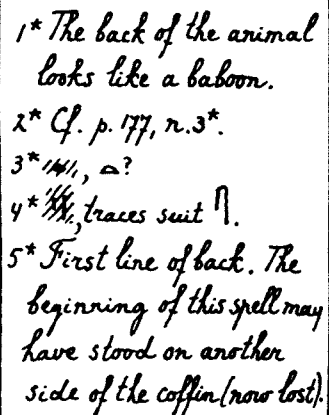 1* The back of the animal
looks like a baboon.
2* Cf. p. 177, n. 3*.
3* , 𓏏?
4* , traces suit 𓋴.
5* First line of back. The
beginning of this spell may
have stood on another
side of the coffin (now lost).